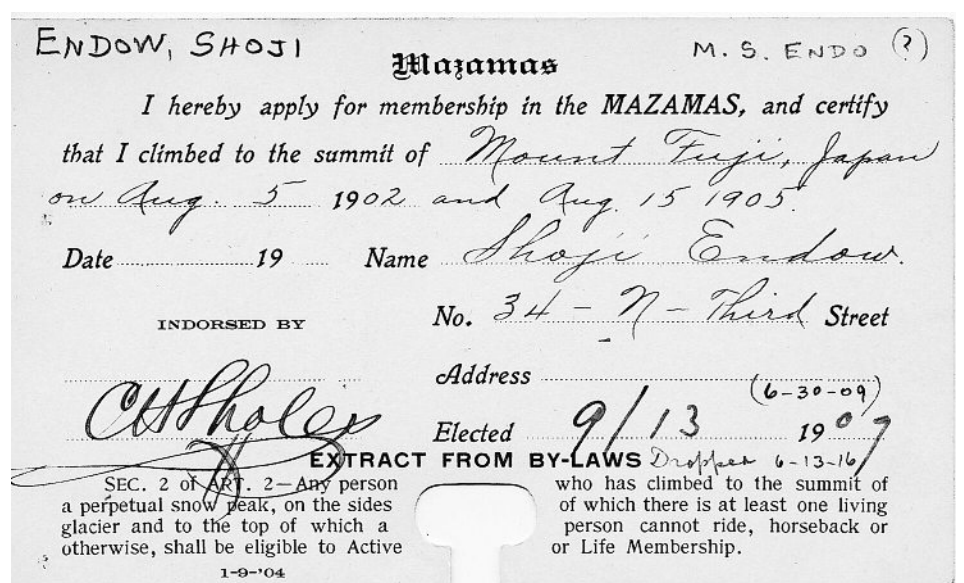 ENDOW, SHOJI
M. S. ENDO (?)
Mazamas
I hereby apply for membership in the MAZAMAS, and certify
that I climbed to the summit of Mount Fuji, Japan
on Aug. 5 1902 and Aug. 15 1905.
Date 19 Name Shoji Endow.
INDORSED BY No. 34 - N - Third Street
Address (6-30-09)
CHSholes
Elected 9/13 1907
EXTRACT FROM BY-LAWS Dropped 6-13-16
SEC. 2 of ART. 2—Any person who has climbed to the summit of
a perpetual snow peak, on the sides of which there is at least one living
glacier and to the top of which a person cannot ride, horseback or
otherwise, shall be eligible to Active or Life Membership.
1-9-'04